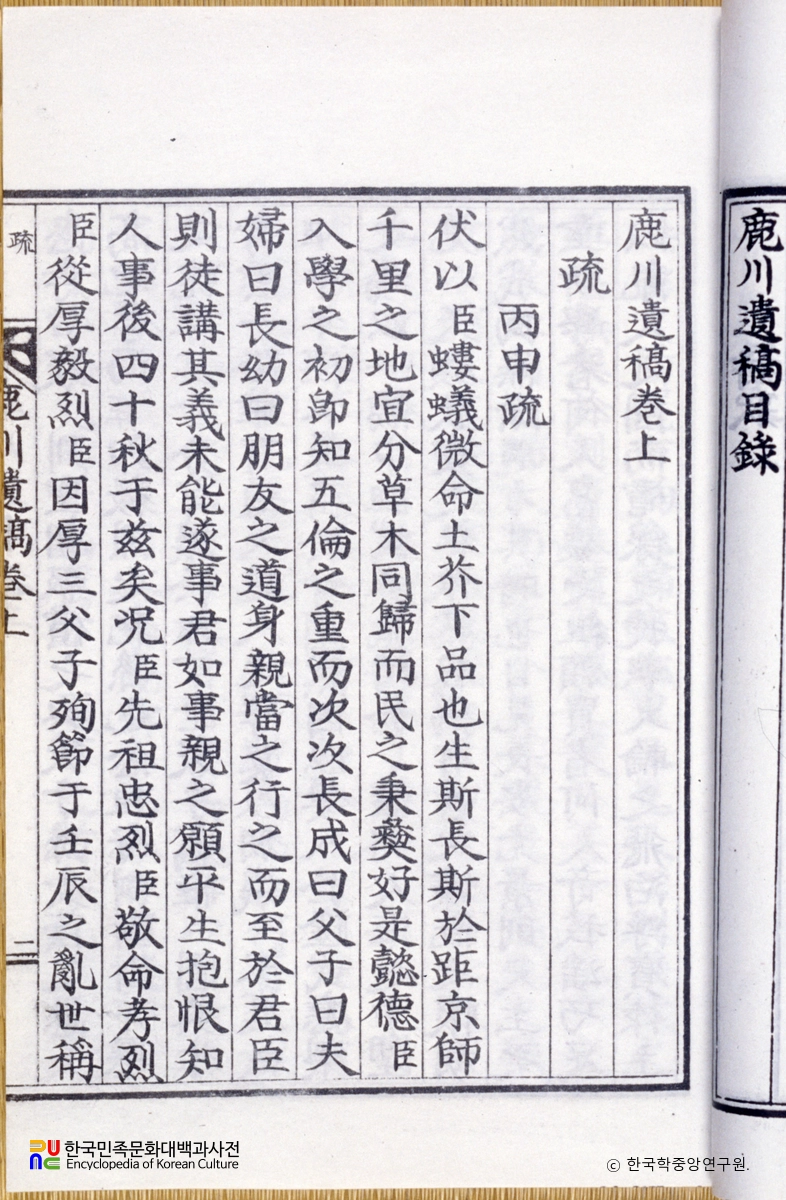 鹿川遺稿目錄
鹿川遺稿卷上
疏
丙申疏
伏以臣螻蟻微命土芥下品也生斯長斯於距京師
千里之地宜分草木同歸而民之秉彝好是懿德臣
入學之初卽知五倫之重而次次長成曰父子曰夫
婦曰長幼曰朋友之道身親當之行之而至於君臣
則徒講其義未能遂事君如事親之願平生抱恨知
人事後四十秋于玆矣况臣先祖忠烈臣敬命孝烈
臣從厚毅烈臣因厚三父子殉節于壬辰之亂世稱
疏
鹿川遺稿卷上
二
한국민족문화대백과사전
Encyclopedia of Korean Culture
ⓒ 한국학중앙연구원.